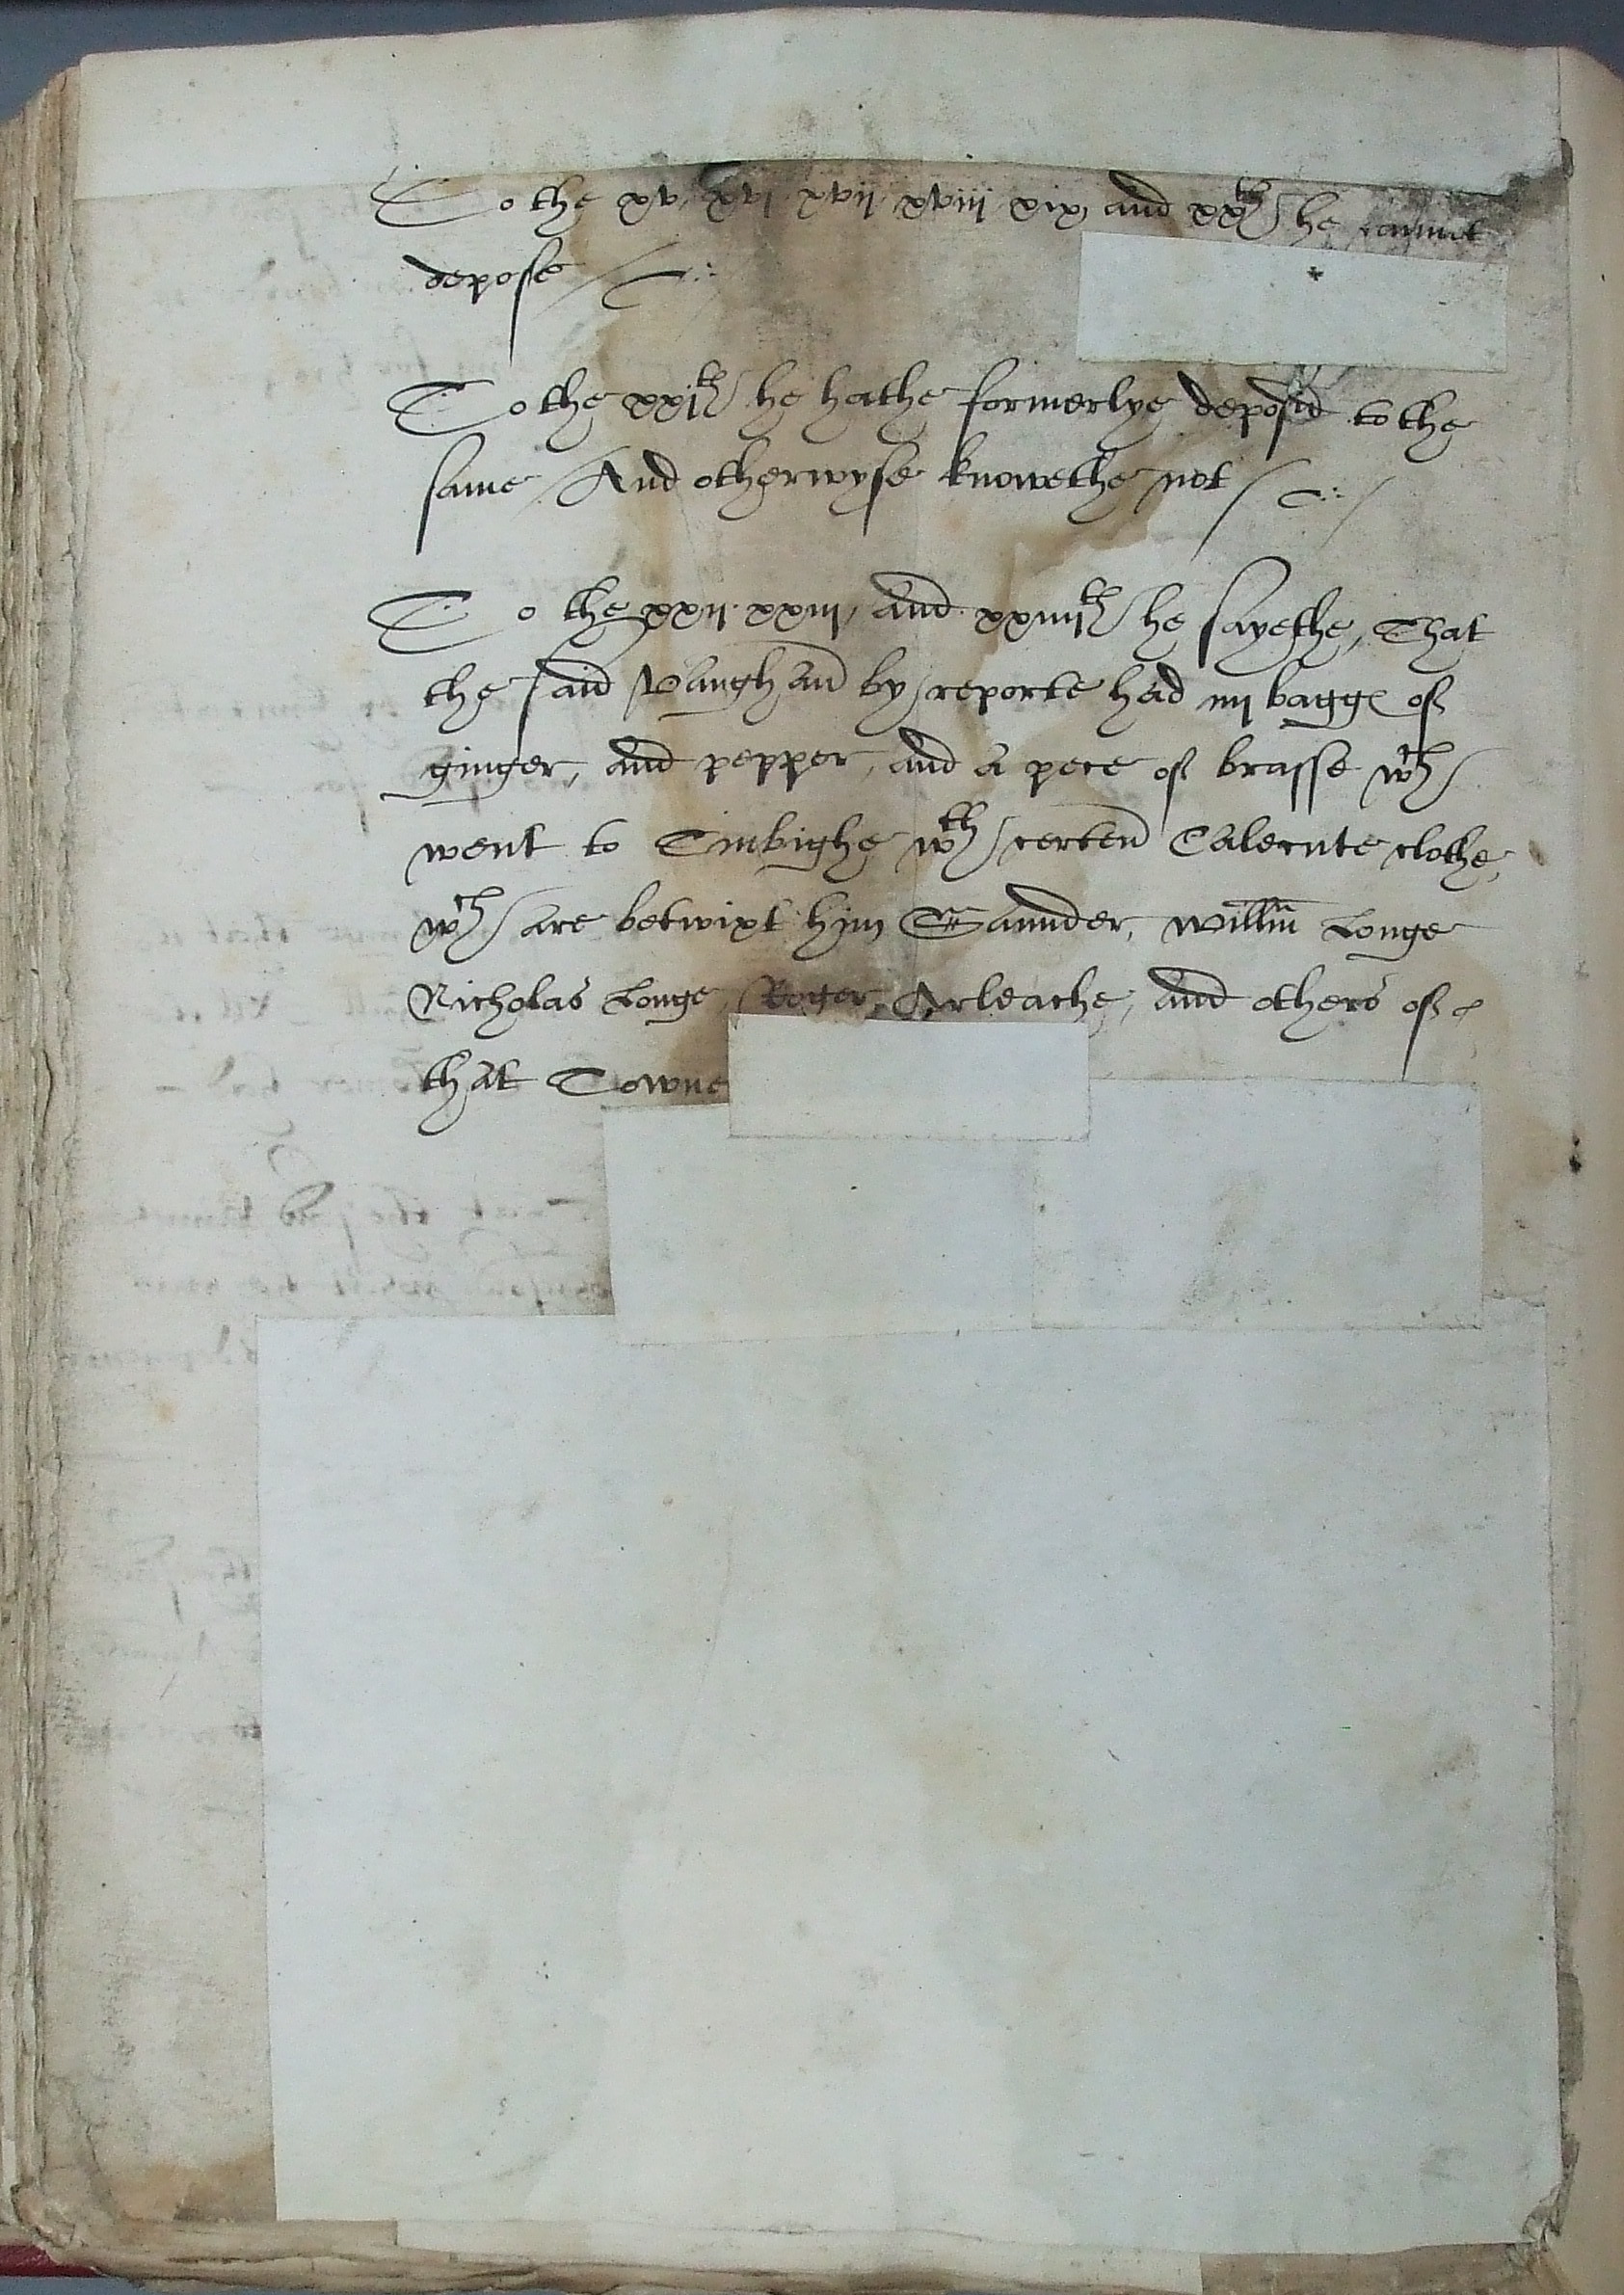 To the xv, xvj xvij, xviij xix, and xxth he cannot
depose
To the xxjth he hathe formerlye deposid to the
same / And otherwyse knowethe not
To the xxij. xxiij, and xxiiijth he sayethe, That
the said Vaughan by reporte had iiij bagges of
ginger, and pepper, and a pece of brasse wch
went to Tinbighe wth certen Calecute clothe,
wch are betwixt him Saunder, Willm Longe
Nicholas Longe, Roger, Arleache, and others of
that Towne